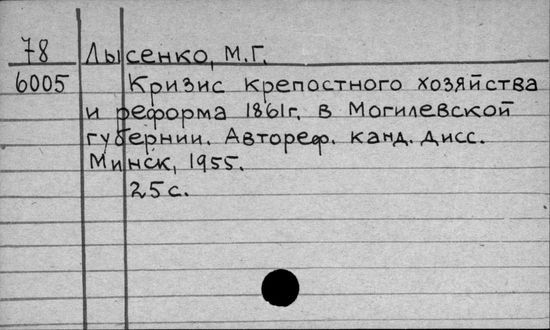 78 Лысенко, М.Г.
6005 Кризис крепостного хозяйства
и реформа 1861г. в Могилевской
губернии. Автореф. канд. дисс.
Минск, 1955.
25 с.